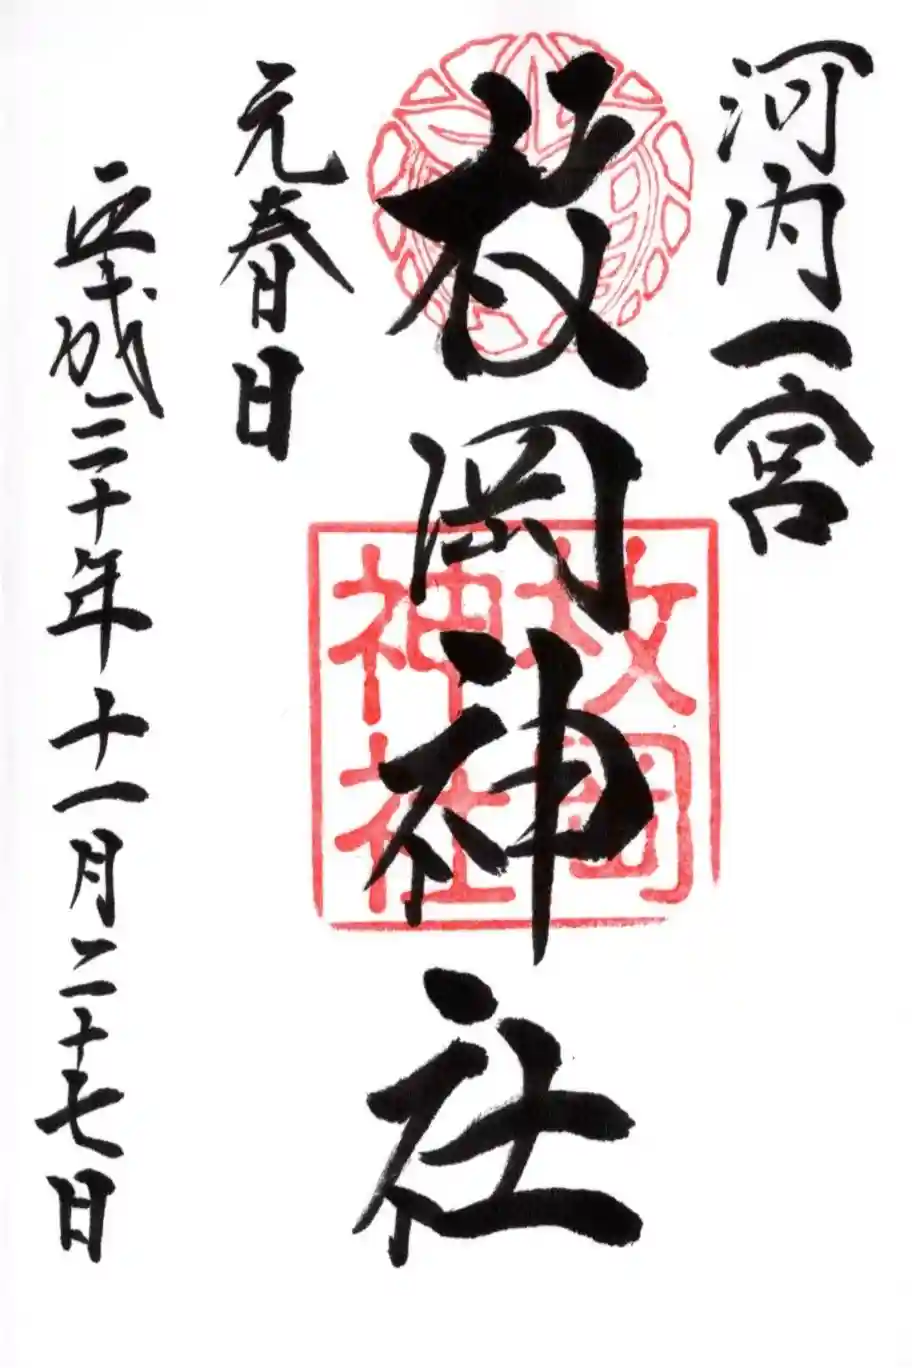 河内一宮
枚岡神社
枚岡
神社
元春日
平成三十年十一月二十七日